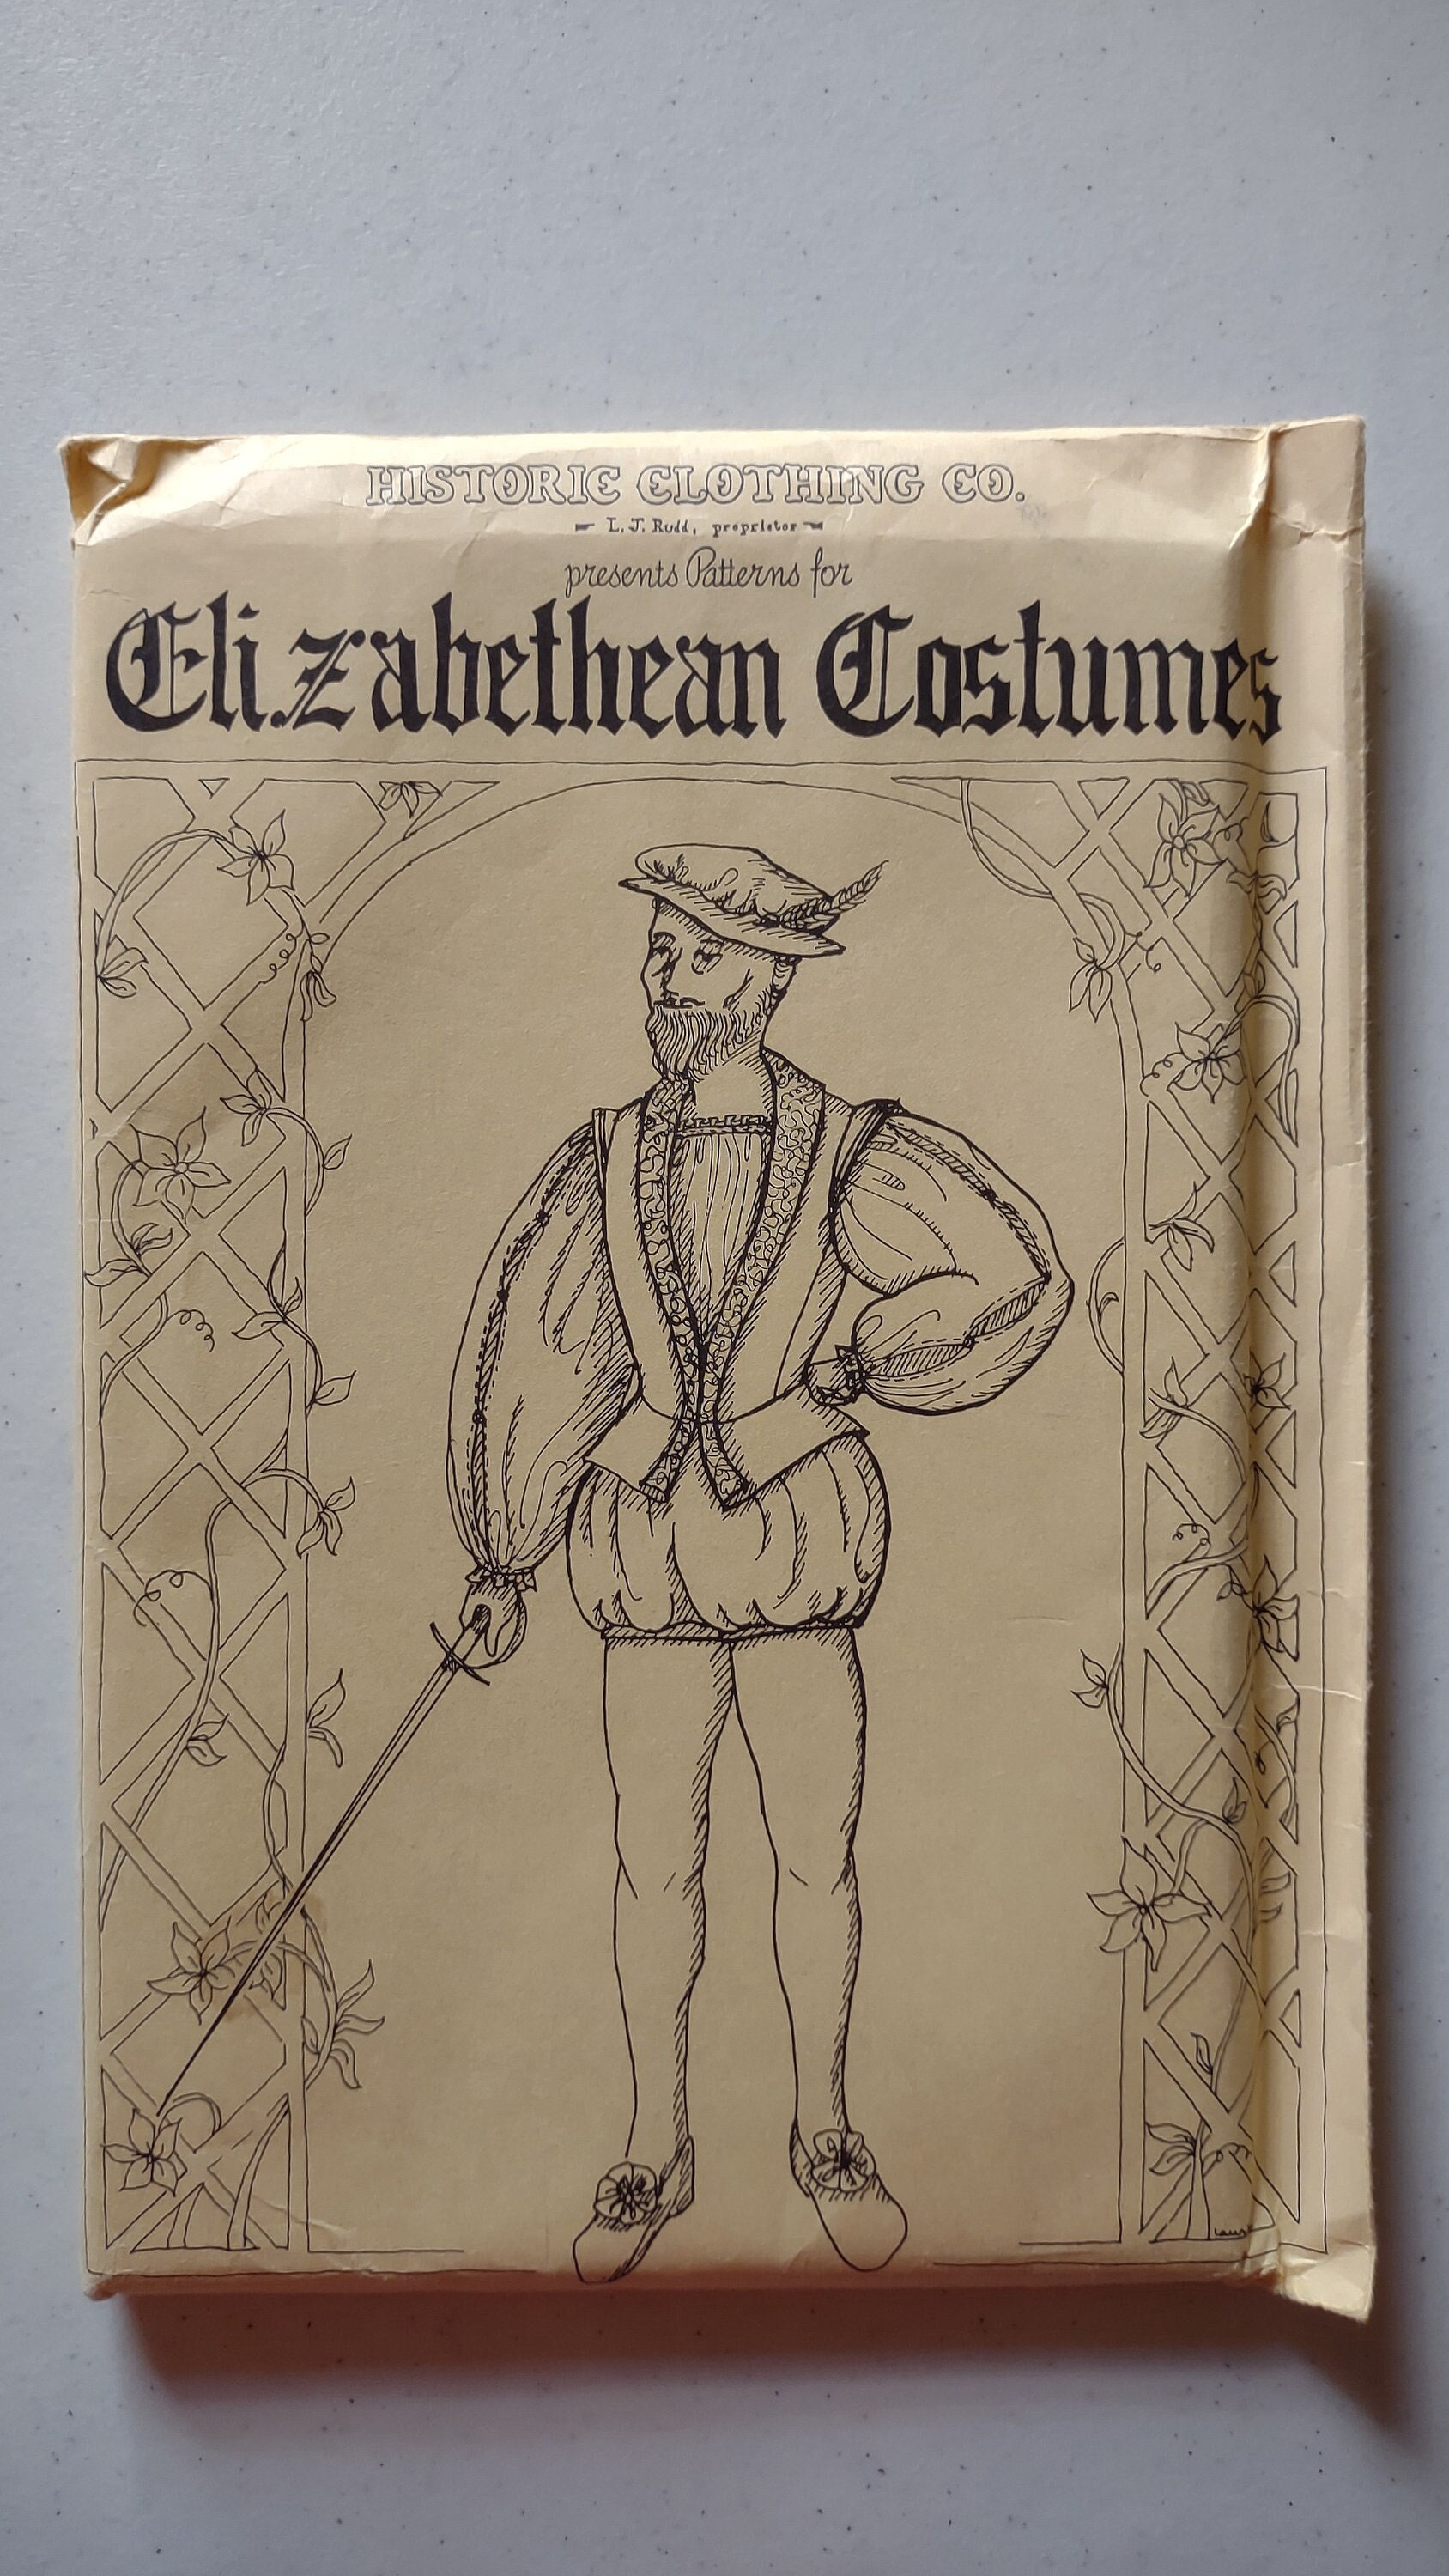 HISTORIC CLOTHING CO.
L. J. Rudd, proprietor
presents Patterns for
Elizabethean Costumes